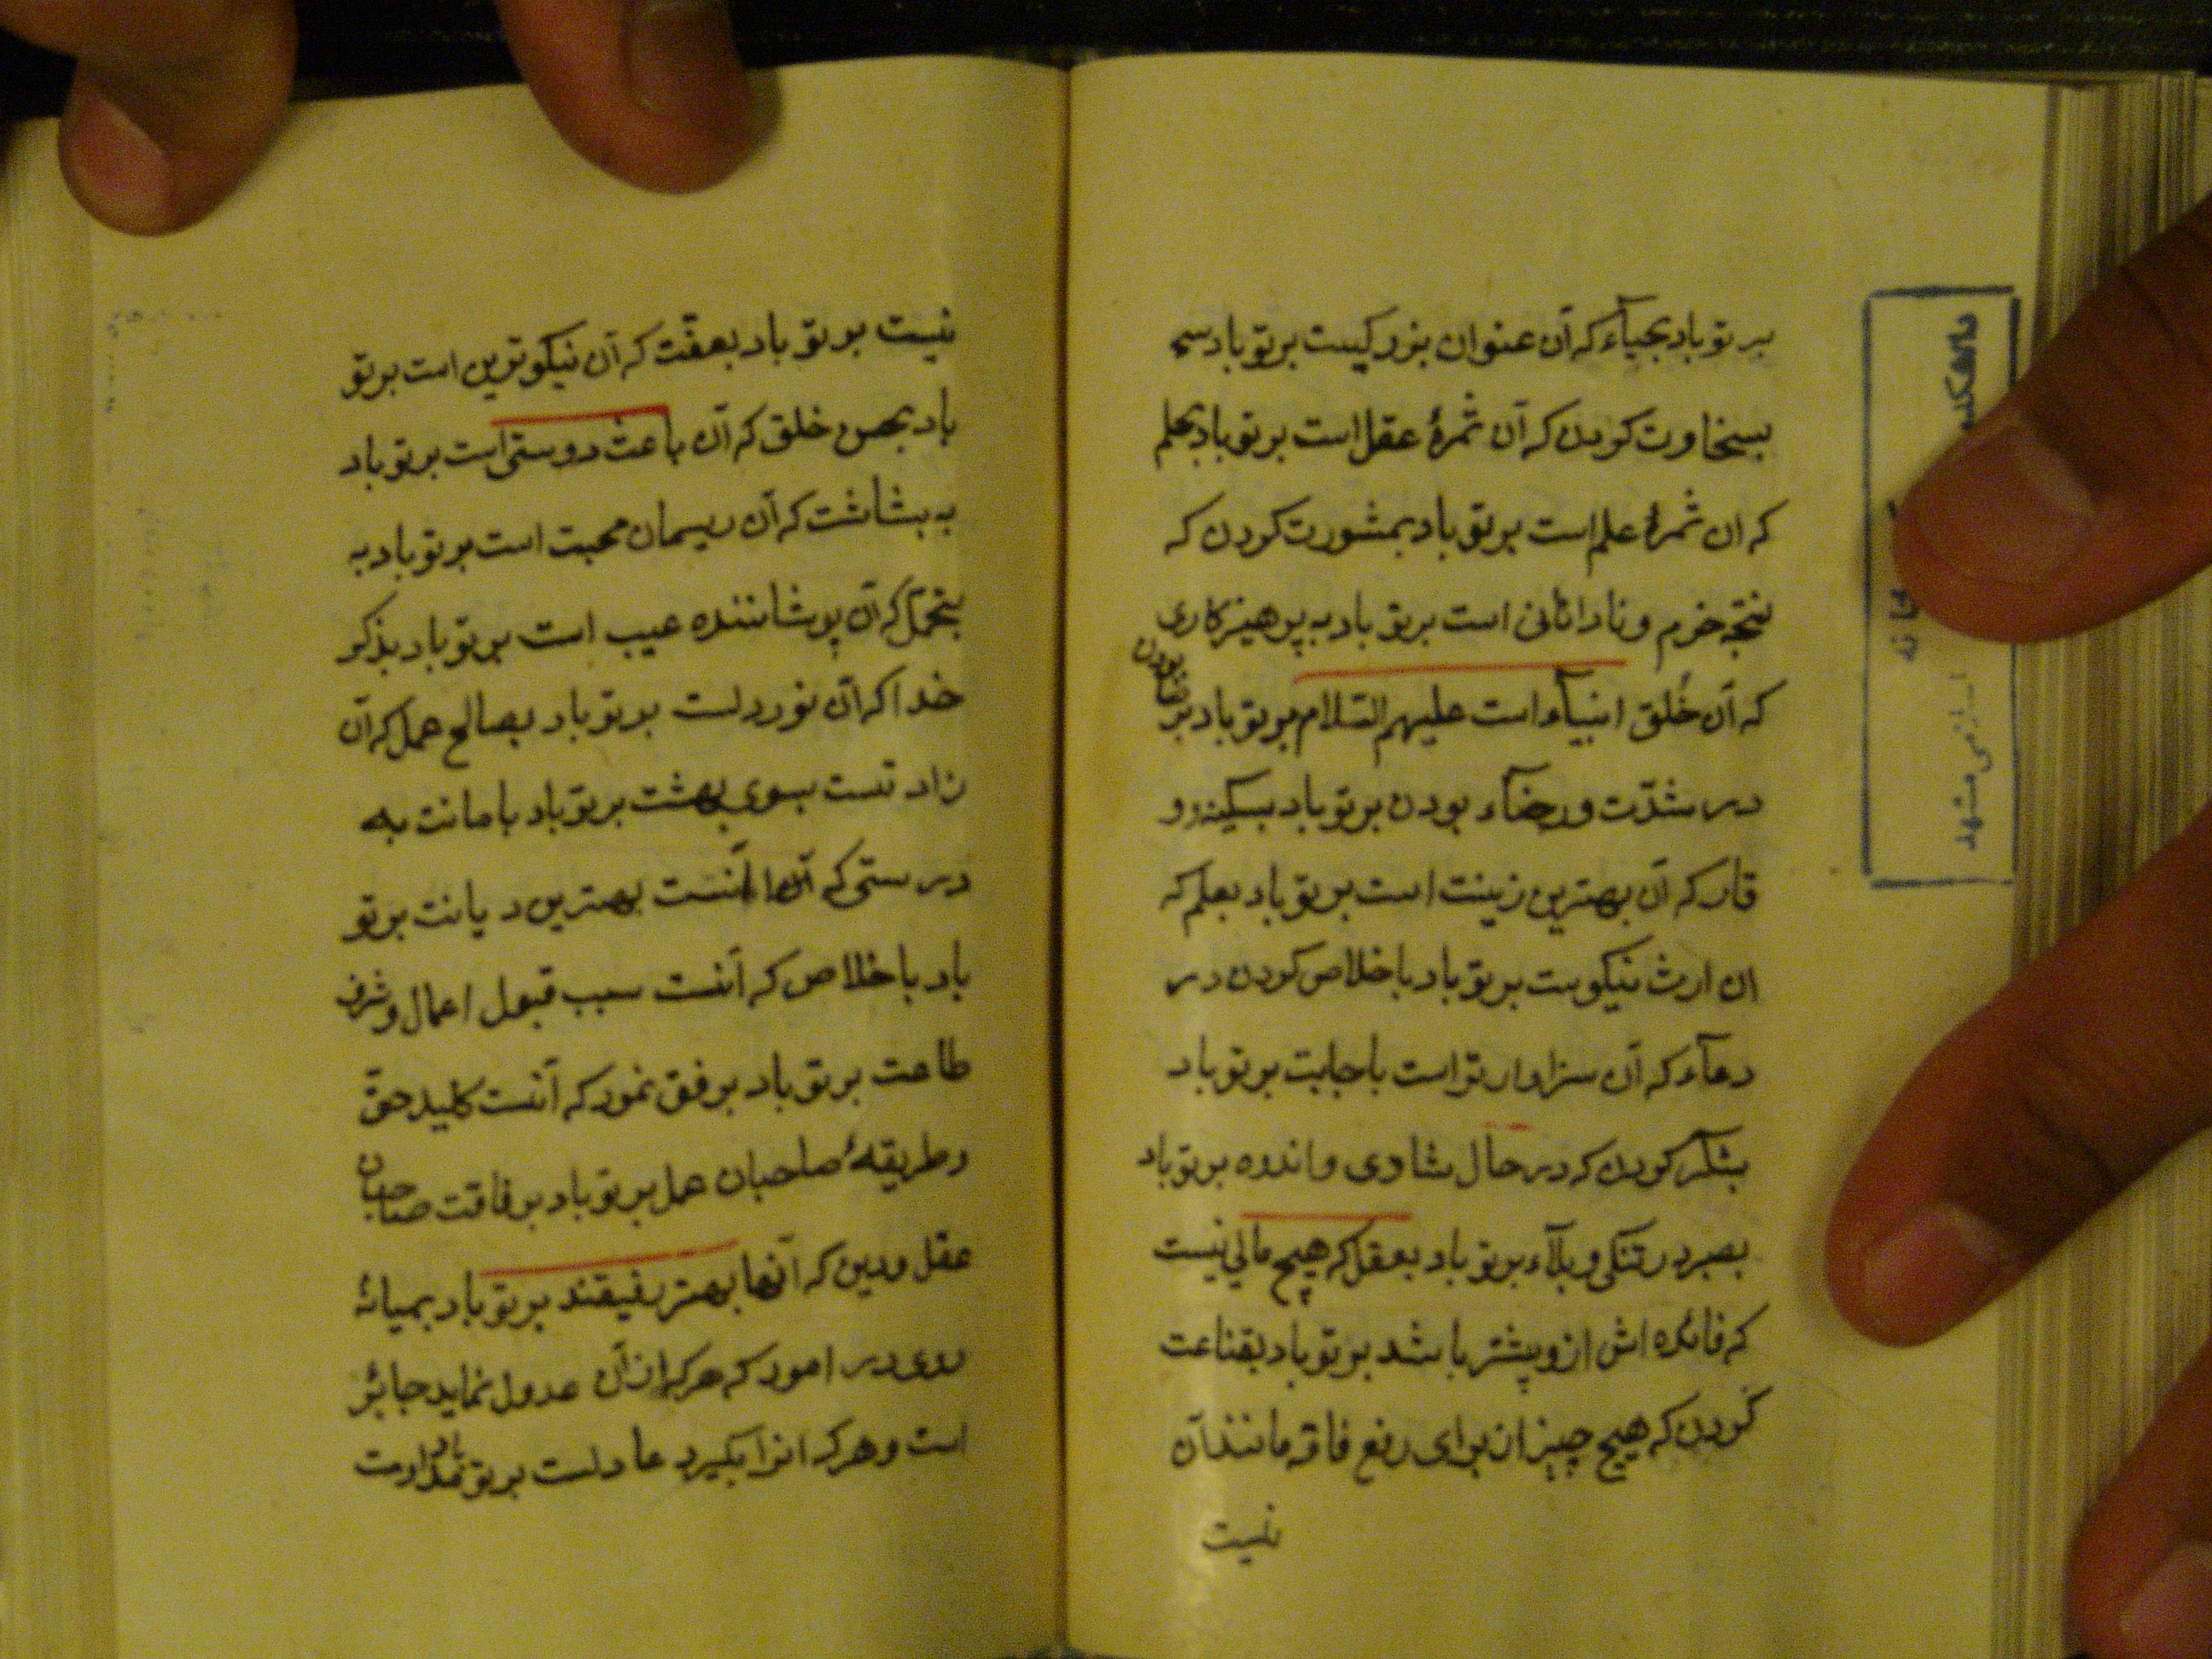 بر تو باد بحیآء که آن عنوان بزرکیست بر تو باد
بسخاوت کردن که آن ثمرهٔ عقل است بر تو باد بحلم
که ان ثمرهٔ علم است بر تو باد بمشورت کردن که
نتیجه خرم و نادانائی است بر تو باد به پرهیزکاری
که آن خُلق انبیآء است علیهم السّلام بر تو باد
در شدّت و رخآء بودن بر تو باد بسکینه و و
قار که آن بهترین زینت است بر تو باد بعلم که
ان ارث نیکویست بر تو باد باخلاص کردن در
دعآء که آن سزاوار تر است باجابت بر تو باد
بشکر کردن که در حال شادی و اندوه بر تو باد
بصبر در تنکی و بلآء بر تو باد بعقل که هیچ مالی نیست
که فائده اش از و پیشتر باشد بر تو باد بقناعت
کردن که هیچ چیز از برای رفع فاقه مانند آن
نیست
نیست بر تو باد بعفّت که آن نیکوترین است بر تو
باد بحسن خلق که آن باعث دوستی است بر تو باد
به بشاشت که آن ریسمان محبت است بر تو باد به
بتحمّل که آن پوشاننده عیب است بر تو باد بذکر
خدا که آن نور دلست بر تو باد بصالح عمل که آن
زاد تست بسوی بهشت بر تو باد بامانت به
درستی که آنست بهترین دیانت بر تو
باد باخلاص که آنست سبب قبول اعمال و شرف
طاعت بر تو باد برفق نمود که آنست کلید حقّ
و طریقهٔ صاحبان عمل بر تو باد برفاقت صاحبان
عقل و دین که آنها بهتر رفیقند بر تو باد بمیانهٔ
روی در امور که هر که از آن عدول نماید جابئر
است و هر که انرا بکیرد عادلست بر تو باد
دانشکده
مشهد